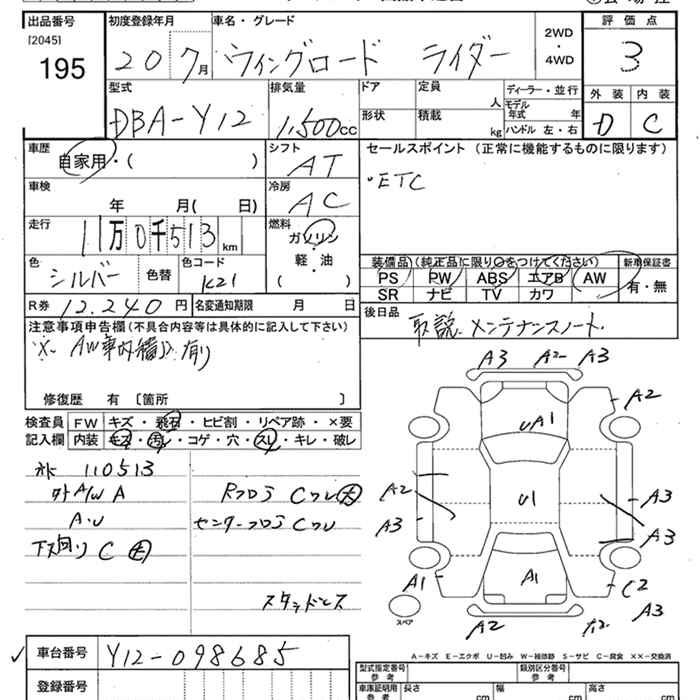 出品番号 初度登録年月 車名・グレード 2WD・4WD 評価点
[2045]
195 20 7月 ウィングロード ライダー 3
型式 排気量 ドア 定員 人 ディーラー・並行 外装 内装
モデル年式 年
DBA-Y12 1,500cc 形状 積載 kg ハンドル 左・右 D C
車歴 シフト セールスポイント (正常に機能するものに限ります)
自家用・( ) AT ・ETC
車検 冷房
年 月( 日) AC
走行 燃料
1万0千513km ガソリン・軽・油 ( )
色 色替 色コード 装備品(純正品に限り○をつけてください) 新車保証書
シルバー K21 PS PW ABS エアB AW 有・無
SR ナビ TV カワ
R券 12,240円 名変通知期限 月 日 後日品
取説 メンテナンスノート
注意事項申告欄(不具合内容等は具体的に記入して下さい)
※ AW車内積 有り
修復歴 有 〔箇所 〕
検査員 FW キズ・飛石・ヒビ割・リペア跡・×要
記入欄 内装 キズ・汚レ・コゲ・穴・スレ・キレ・破レ
110513
外A/W A RフロアCワレ大
A・U センターフロアCワレ
下大回り C 大
スタッドレス
A3 A2 A3
A2
UA1
A2 U1 A3
A3 A3
A1 A1 C2
A3
スペア
A2 A2
A-キズ E-エクボ U-凹み W-補修跡 S-サビ C-腐食 ××-交換済
車台番号 Y12-098685 型式指定番号 参考 類別区分番号 参考
登録番号 車庫証明用 参考 長さ cm 幅 cm 高さ cm